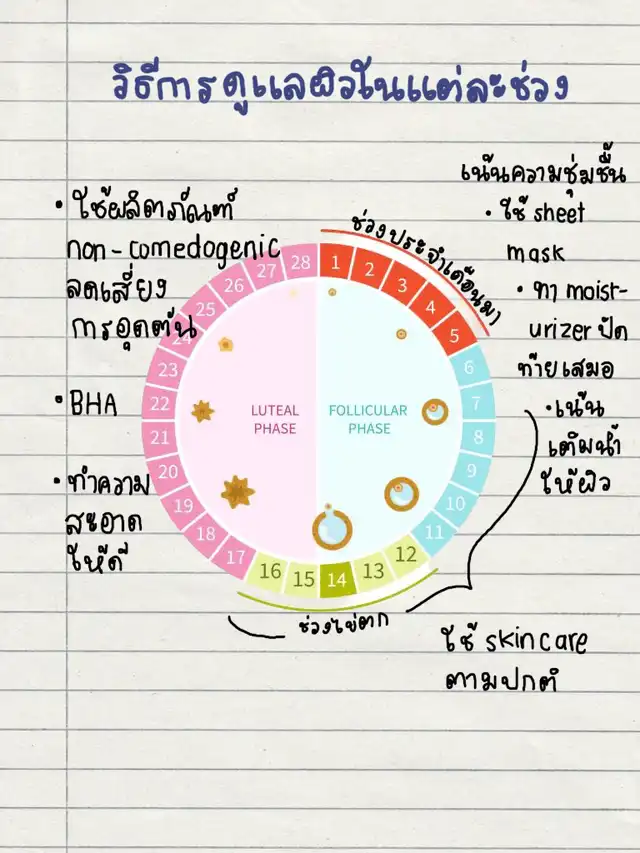 วิธีการดูแลผิวในแต่ละช่วง
เน้นความชุ่มชื้น
• ใช้ sheet
mask
• ทา moist-
urizer ปิด
ท้ายเสมอ
• เน้น
เติมน้ำ
ให้ผิว
• ใช้ผลิตภัณฑ์
non-comedogenic
ลดเสี่ยง
การอุดตัน
• BHA
• ทำความ
สะอาด
ให้ดี
ช่วงประจำเดือนมา
1 2 3 4 5 6 7 8 9 10 11 12 13 14 15 16 17 18 19 20 21 22 23 24 25 26 27 28
LUTEAL
PHASE
FOLLICULAR
PHASE
ช่วงไข่ตก
ใช้ skincare
ตามปกติ